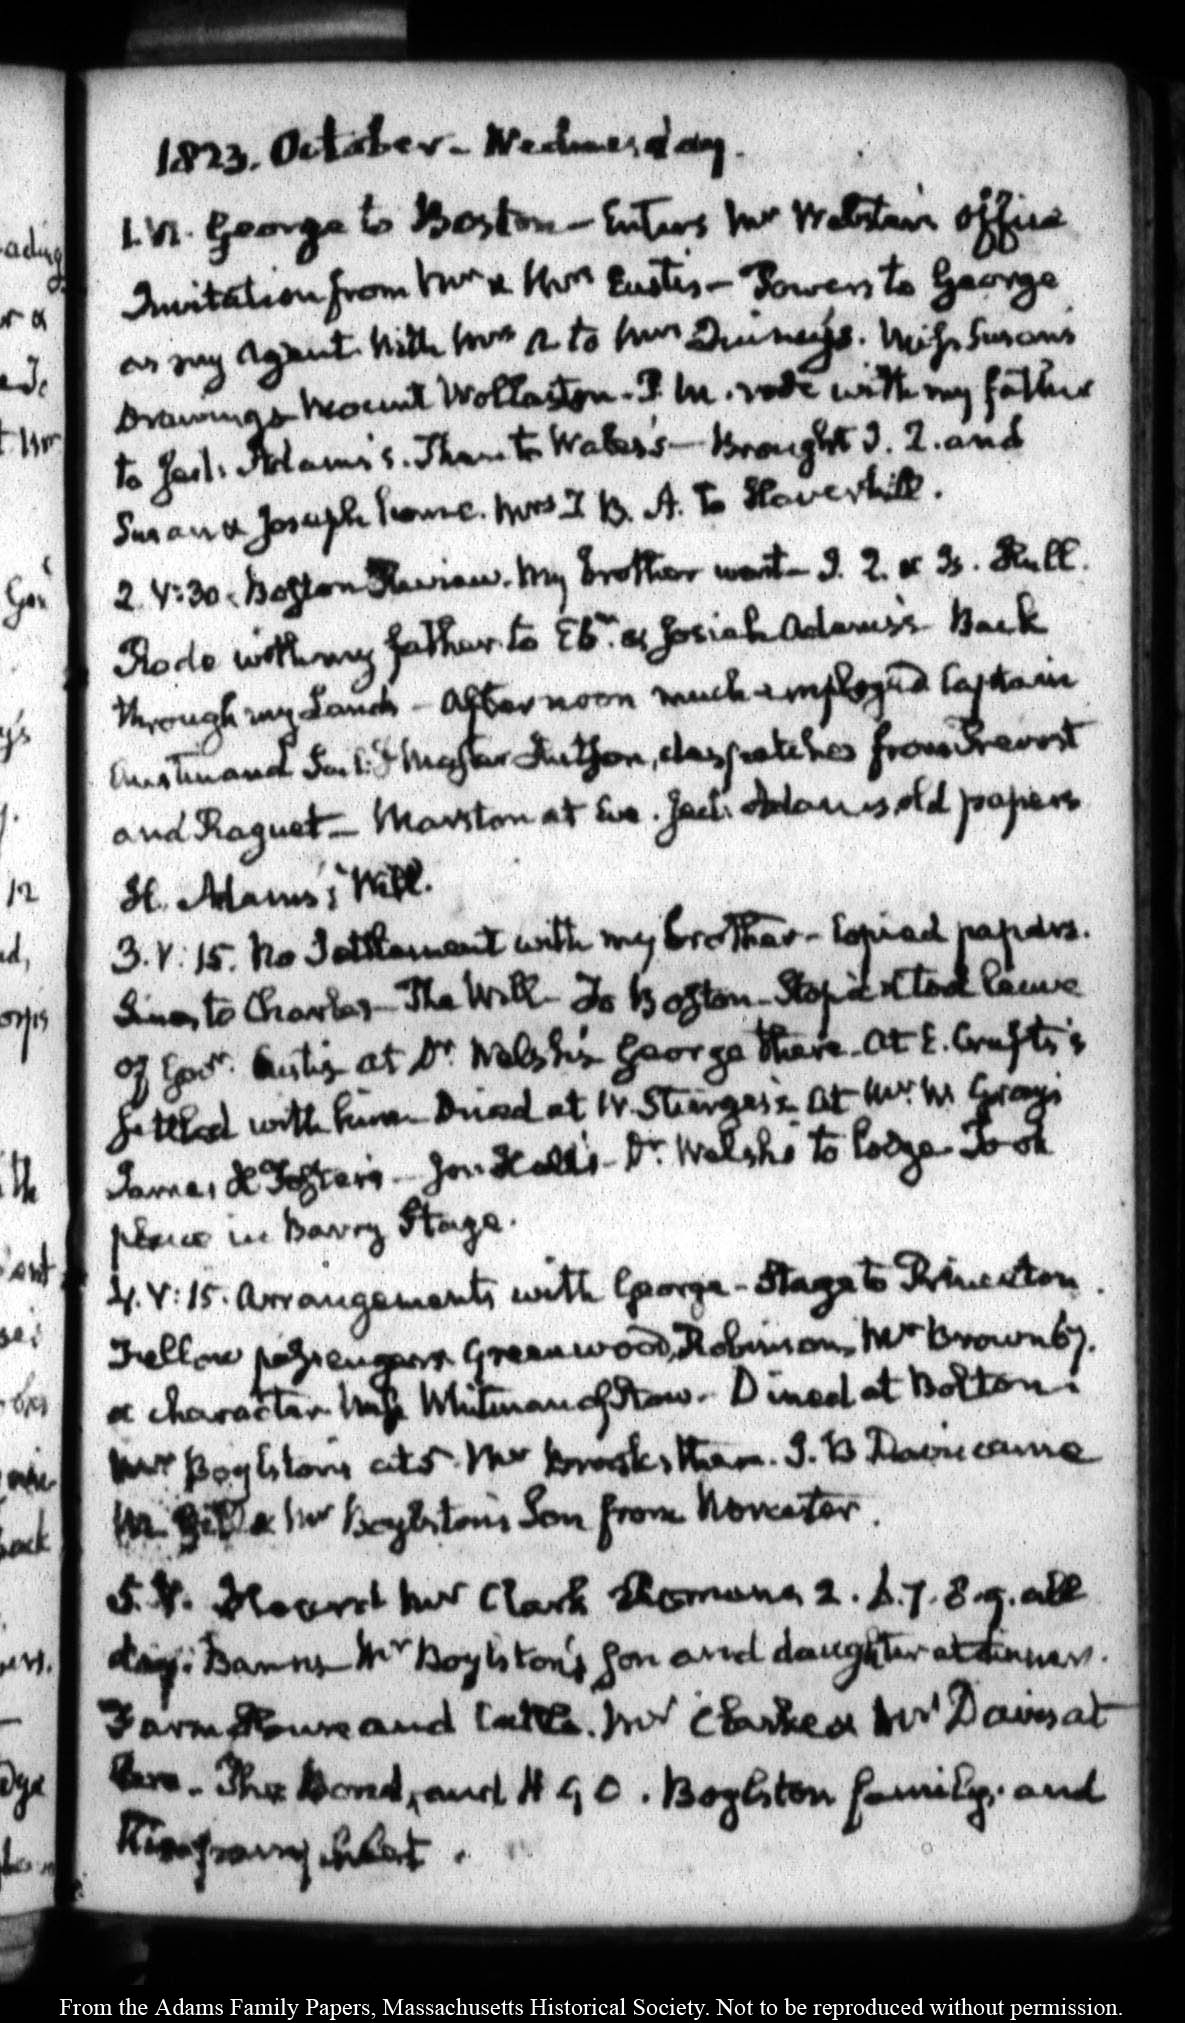 1823. October - Wednesday.
1. VI. George to Boston - Enters Mr Webster's office
Invitation from Mr & Mrs Eustis - Powers to George
as my Agent. With Mrs A to Mrs Quincy's. Miss Susan's
Drawings Mount Wollaston. P. M. rode with my father
to Jed: Adams's. Thence to Wales's - Brought J. Q. and
Susan & Joseph home. Mrs T. B. A. to Haverhill.
2. V:30. Boston Review. My brother went - J. Q. & Is. Hull.
Rode with my father to Ebr. & Josiah Adams's Back
through my Lands - Afternoon much employed Captain
and Master, despatches from Prevost
and Raguet - Marston at Eve. Jed: Adams, old papers
H. Adams's Will.
3. V:15. No Settlement with my brother - Copied papers.
Lines to Charles - The Will - To Boston - Stop'd & took leave
of Govr. Eustis at Dr. Welsh's George there - At E. Crufts's
Settled with him - Dined at W. Sturgis's At Mr. W. Gray's
James H Foster's - Jos: Hall's - Dr. Welsh's to lodge - Took
place in Barry Stage.
4. V:15. Arrangements with George - Stage to Princeton.
Fellow passengers Greenwood, Robinson, Mr Brown 67.
a character Miss Whitman of Stow - Dined at Bolton.
Mr Boylston's at 5. Mr Brooks there. J. B Davis came
Mr Boylston's Son from Worcester.
5. V. Heard Mr Clark Romans 2. 6. 7. 8. 9. all
day. Barns Mr Boylston's Son and daughter at dinner.
Farm House and Cattle. Mr Clarke & Mr Davis at
Eve - The Bond, and H G O. Boylston family, and